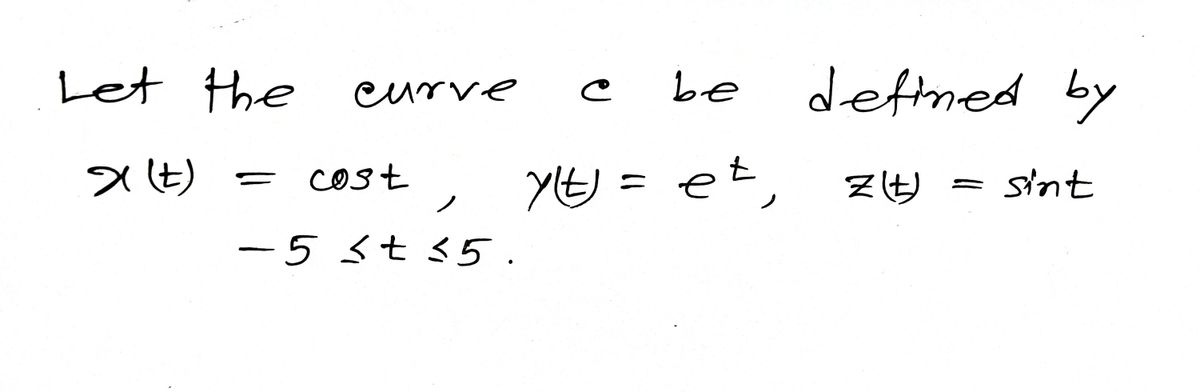 Let the curve c be defined by
x(t) = cost, y(t) = e^t, z(t) = sint
-5 ≤ t ≤ 5.